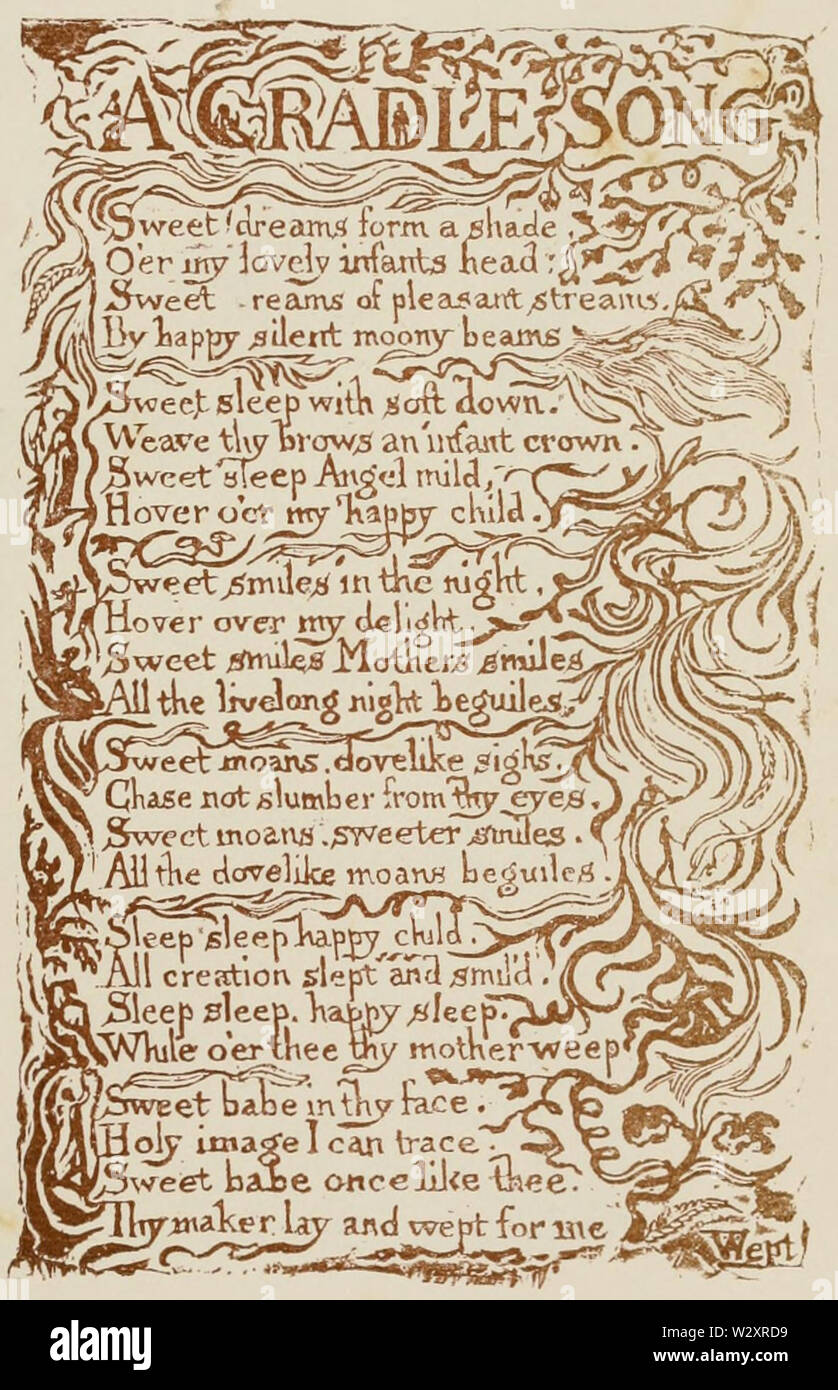 A CRADLE SONG
Sweet dreams form a shade,
O'er my lovely infants head;
Sweet reams of pleasant streams,
By happy silent moony beams
Sweet sleep with soft down.
Weave thy brows an infant crown.
Sweet sleep Angel mild,
Hover o'er my happy child.
Sweet smiles in the night,
Hover over my delight.
Sweet smiles Mothers smiles
All the livelong night beguiles.
Sweet moans, dovelike sighs,
Chase not slumber from thy eyes,
Sweet moans, sweeter smiles,
All the dovelike moans beguiles.
Sleep sleep happy child.
All creation slept and smil'd.
Sleep sleep, happy sleep,
While o'er thee thy mother weep
Sweet babe in thy face,
Holy image I can trace
Sweet babe once like thee,
Thy maker lay and wept for me
Wept
alamy
Image ID: W2XRD9
www.alamy.com